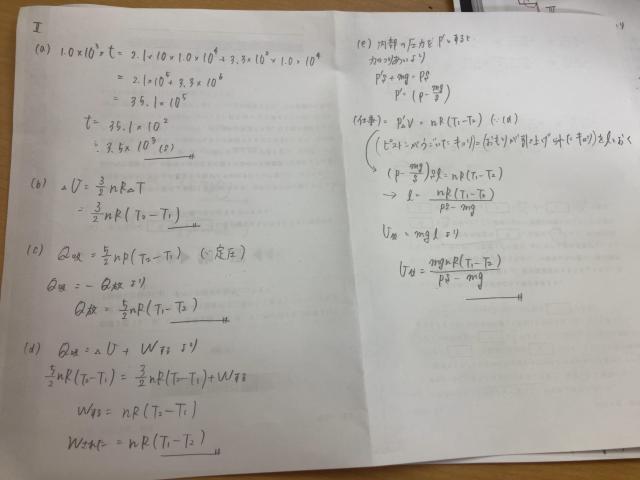 II
(a) 1.0×10³×t = 2.1×10×1.0×10⁴ + 3.3×10²×1.0×10⁴
= 2.1×10⁵ + 3.3×10⁶
= 35.1×10⁵
t = 35.1×10²
∴ 3.5×10³ (s)
(b) △U = 3/2 nR△T
= 3/2 nR(T₂-T₁)
(c) Q吸 = 5/2 nR(T₂-T₁) (∵定圧)
Q吸 = -Q放 より
Q放 = 5/2 nR(T₁-T₂)
(d) Q吸 = △U + Wする より
5/2 nR(T₂-T₁) = 3/2 nR(T₂-T₁) + Wする
Wする = nR(T₂-T₁)
Wされた = nR(T₁-T₂)
(e) 内部の圧力をP'とすると
力のつりあいより
P'S + mg = PS
P' = (P - mg/S)
(仕事) = P'△V = nR(T₁-T₂) (∵(d))
(ピストンがうごいたキョリ)=(おもりが引き上げられたキョリ)をlとおく
(P - mg/S)Sl = nR(T₁-T₂)
→ l = nR(T₁-T₂)/PS-mg
U = mgl より
U = mgnR(T₁-T₂)/PS-mg